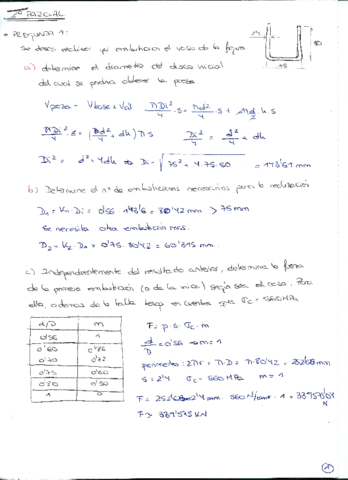 2º PARCIAL
• PREGUNTA 1:
Se desea realizar por embutición el vaso de la figura
a) determine el diámetro del disco inicial
del cual se podría obtener la pieza
Vpieza = Vbase + Vcil πDi²/4 · s = πd²/4 · s + πd h s
πDi²/4 · s = (d²/4 + dh) π s Di²/4 = d²/4 + dh
Di² = d² + 4dh ⇒ Di = √75² + 4·75·50 = 143'61 mm
b) Determine el nº de embuticiones necesarias para la realización
D₁ = K₁ · Di = 0'56 · 143'6 = 80'42 mm > 75 mm
Se necesita otra embutición más.
D₂ = K₂ · D₁ = 0'75 · 80'42 = 60'315 mm.
c) Independientemente del resultado anterior, determine la fuerza
de la primera embutición (o de la única) según sea el caso. Para
ello, además de la tabla tenga en cuenta que σc = 560 MPa
d/D m
0'56 1
0'60 0'86
0'70 0'72
0'75 0'60
0'80 0'50
1 0
F = p · s · σc · m
d/D = 0'56 ⇒ m = 1
perímetro: 2πr = π·D = π·80'42 = 252'65 mm
s = 2'4 σc = 560 MPa m = 1
N
1